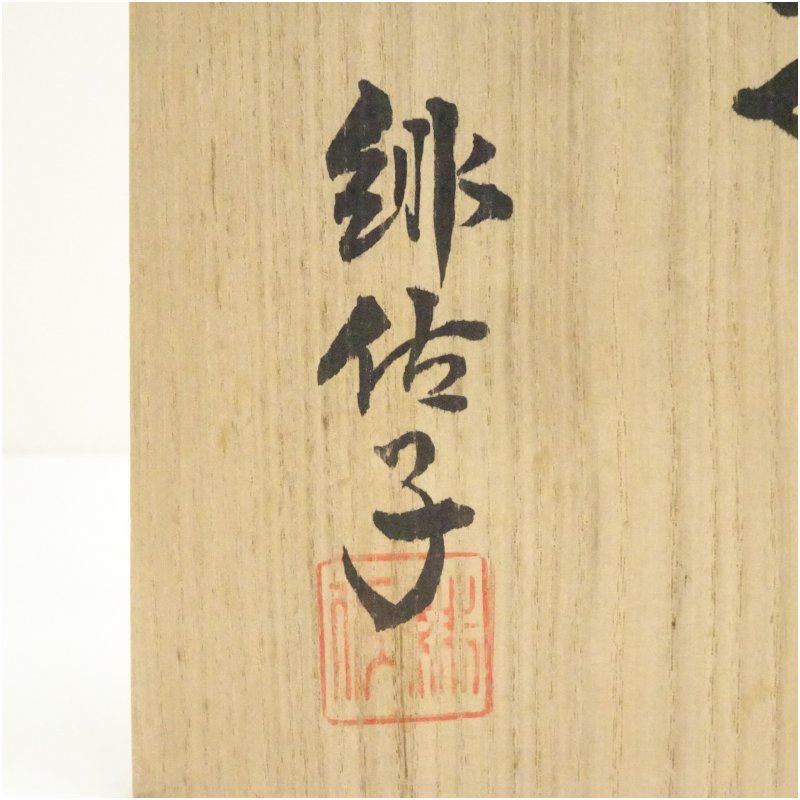 緋佐子